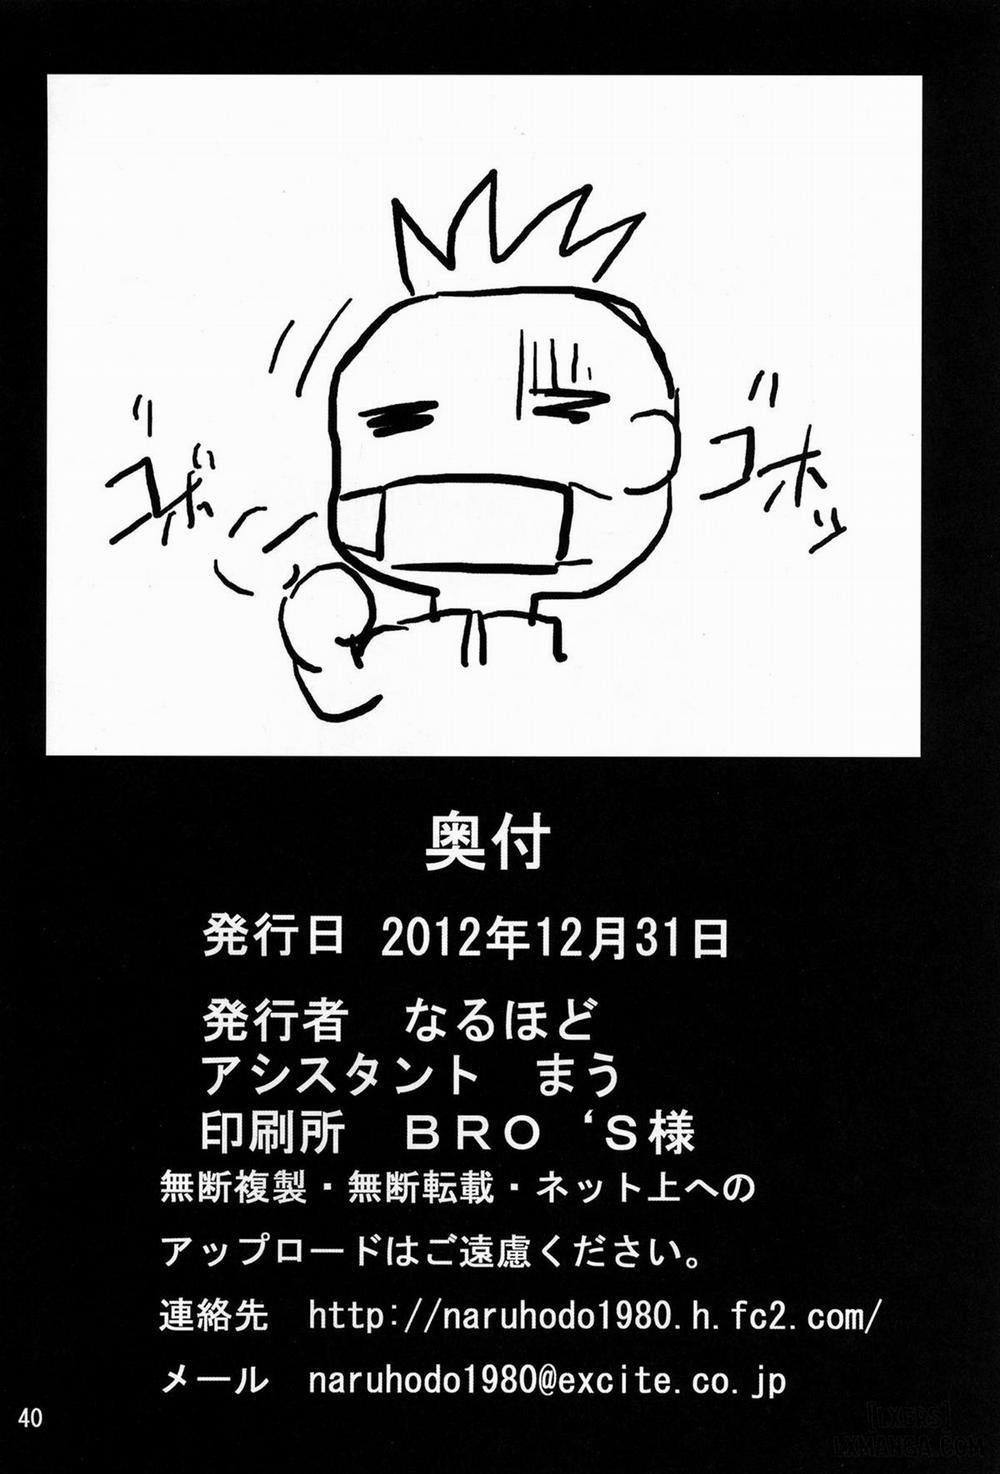 ゴホ゛
ゴホッ
奥付
発行日 2012年12月31日
発行者 なるほど
アシスタント まう
印刷所 ＢＲＯ ‘Ｓ様
無断複製・無断転載・ネット上への
アップロードはご遠慮ください。
連絡先 http://naruhodo1980.h.fc2.com/
メール naruhodo1980@excite.co.jp
40
[LXERS]
LXMANGA.COM